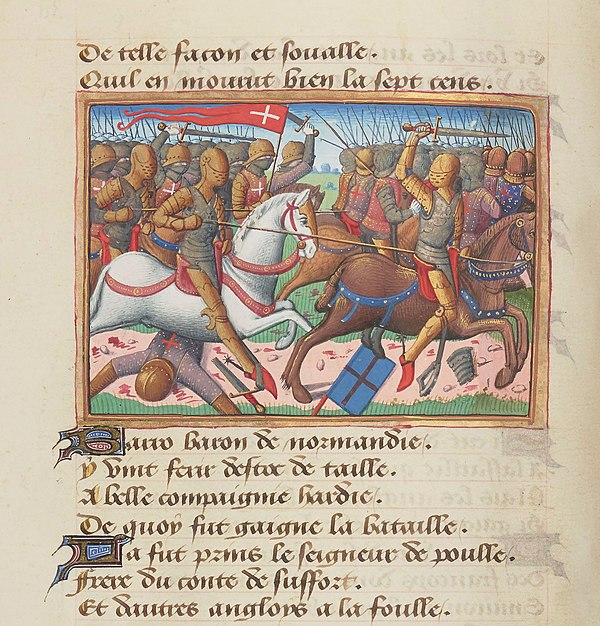 De telle facon et soualle.
Quil en mourut bien la sept cens.
baron de normandie.
y vint ferir destoc de taille.
A belle compaignie hardie.
De quoy fut gaigne la bataille.
La fut prins le seigneur de poulle.
Frere du conte de suffort.
Et dautres angloys a la foulle.